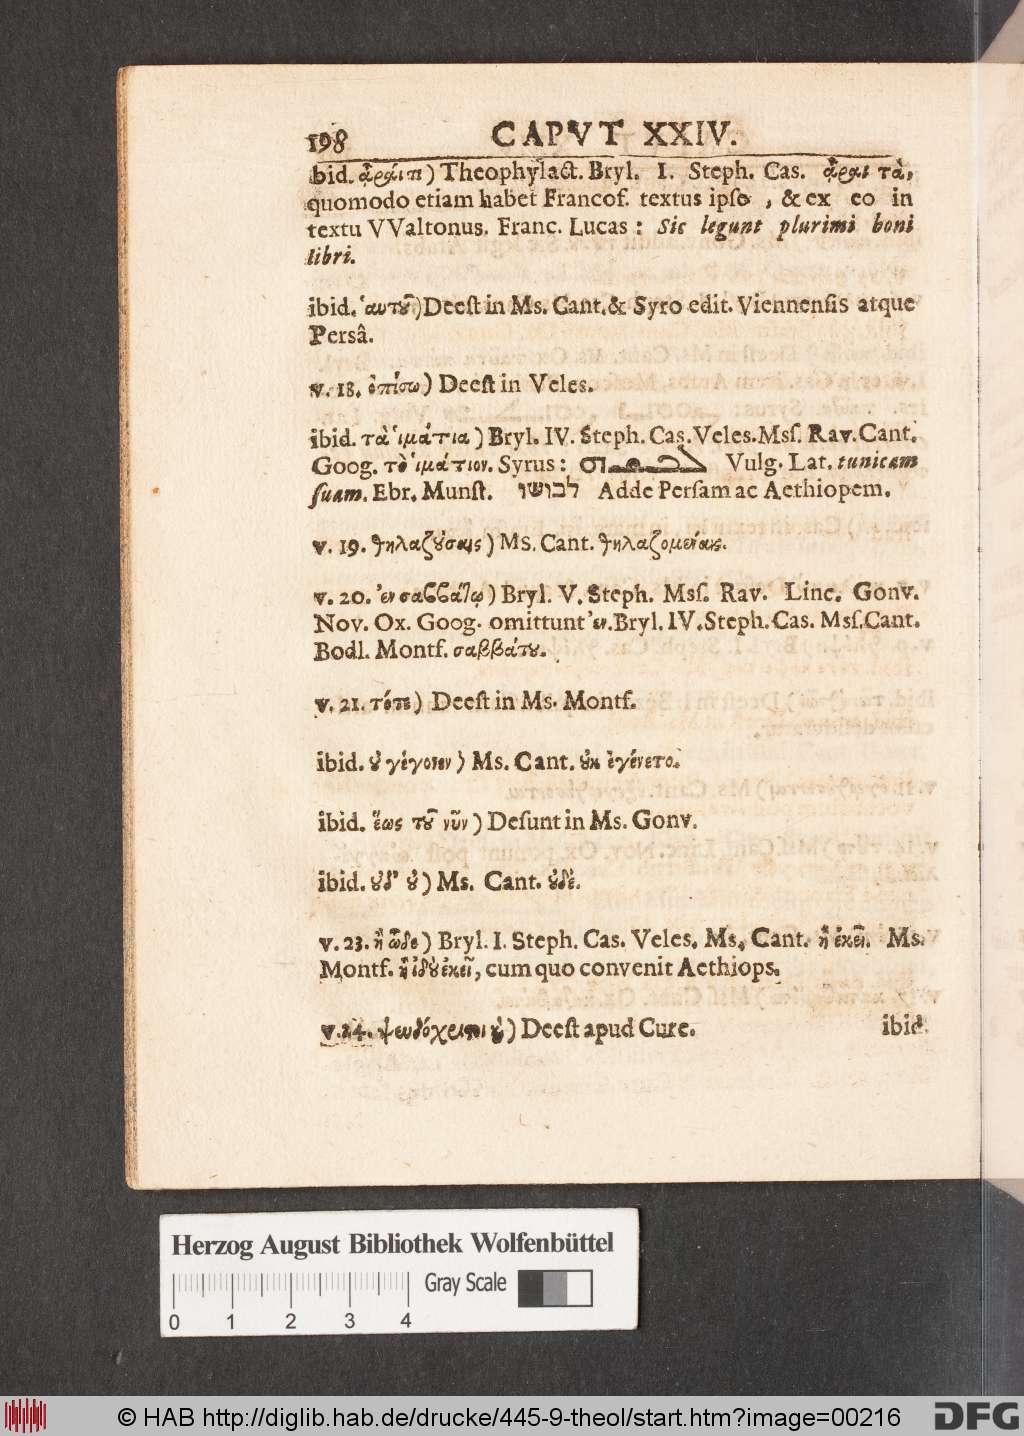 198 CAPVT XXIV.
ibid. ἆραί τι) Theophylact. Bryl. I. Steph. Cas. ἆραι τὰ,
quomodo etiam habet Francof. textus ipſe, & ex eo in
textu VValtonus. Franc. Lucas: Sic legunt plurimi boni
libri.
ibid. ἁυτοῦ) Deeſt in Ms. Cant. & Syro edit. Viennenſis atque
Persâ.
v. 18. ὀπίσω) Deeſt in Veles.
ibid. τὰ ἱμάτια) Bryl. IV. Steph. Cas. Veles. Msſ. Rav. Cant.
Goog. τὸ ἱμάτιον. Syrus: Vulg. Lat. tunicam
ſuam. Ebr. Munſt. לבושו Adde Perſam ac Aethiopem.
v. 19. θηλαζούσαις) Ms. Cant. θηλαζομέναις.
v. 20. ἐν σαββάτῳ) Bryl. V. Steph. Msſ. Rav. Linc. Gonv.
Nov. Ox. Goog. omittunt ἐν. Bryl. IV. Steph. Cas. Msſ. Cant.
Bodl. Montf. σαββάτου.
v. 21. τότε) Deeſt in Ms. Montf.
ibid. οὐ γέγονεν) Ms. Cant. οὐκ ἐγένετο.
ibid. ἕως τοῦ νῦν) Deſunt in Ms. Gonv.
ibid. οὐδ' οὐ) Ms. Cant. οὐδὲ.
v. 23. ἢ ὧδε) Bryl. I. Steph. Cas. Veles. Ms. Cant. ἢ ἐκεῖ. Ms.
Montf. ἢ ἰδοὺ ἐκεῖ, cum quo convenit Aethiops.
v. 24. ψευδόχριστοι καὶ) Deeſt apud Curc. ibid.
Herzog August Bibliothek Wolfenbüttel
Gray Scale
0 1 2 3 4
© HAB http://diglib.hab.de/drucke/445-9-theol/start.htm?image=00216 DFG